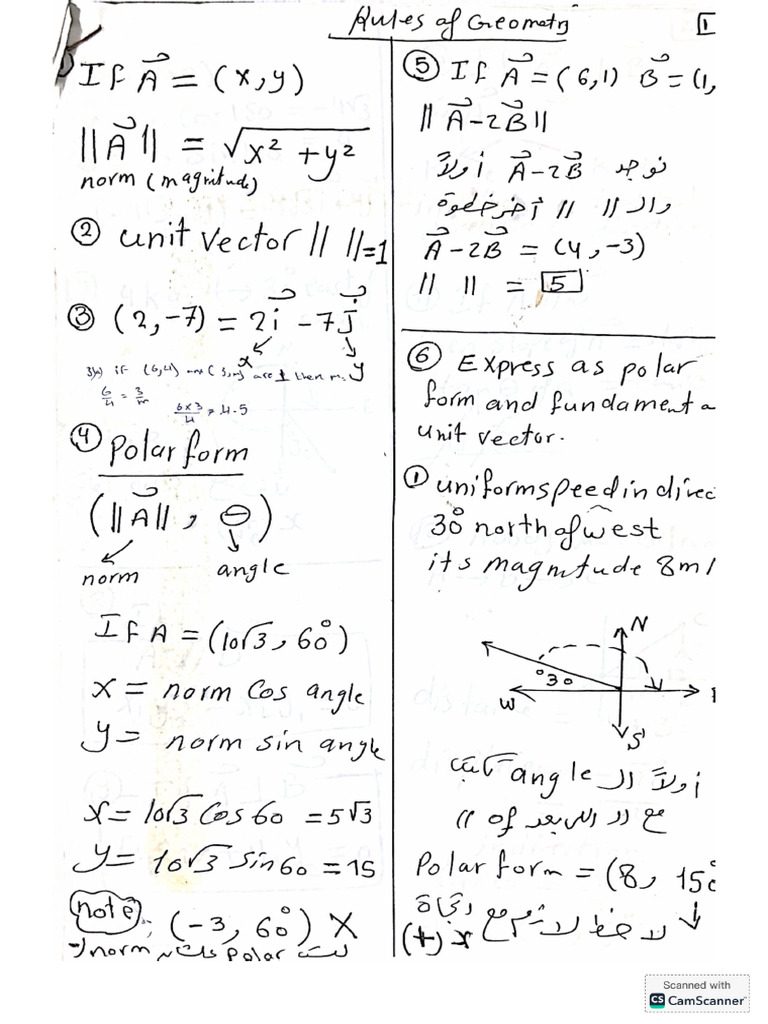 Rules of Geometry
1
If A = (x, y)
||A|| = √x² + y²
norm (magnitude)
② unit vector || ||=1
③ (2, -7) = 2i - 7j
x
y
if (6,4) and (3,m) are ⊥ then m
6/4 = 3/m
6×3/4 = 4.5
④ Polar form
(||A|| , θ)
norm angle
If A = (10√3, 60°)
x = norm cos angle
y = norm sin angle
x = 10√3 cos 60 = 5√3
y = 10√3 sin 60 = 15
note: (-3, 60°) X
norm polar
⑤ If A = (6,1) B = (1,
||A-2B||
نوجد A-2B أولاً
والـ || || آخر خطوة
A-2B = (4, -3)
|| || = 5
⑥ Express as polar
form and fundament
unit vector.
① uniform speed in direc
30° north of west
its magnitude 8m/
N
30°
W
S
أولاً الـ angle
مع الـ اللي بعد of
Polar form = (8, 150
لاحظ لازم مع اتجاه
(+) x
Scanned with
CS CamScanner